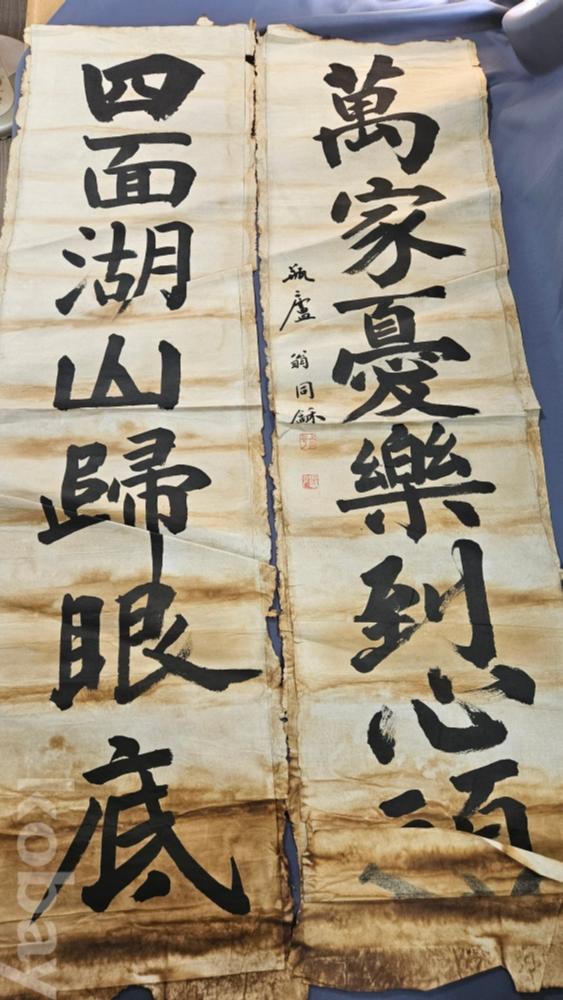 萬家憂樂到心頭
瓶盧 翁同龢
四面湖山歸眼底
kobay